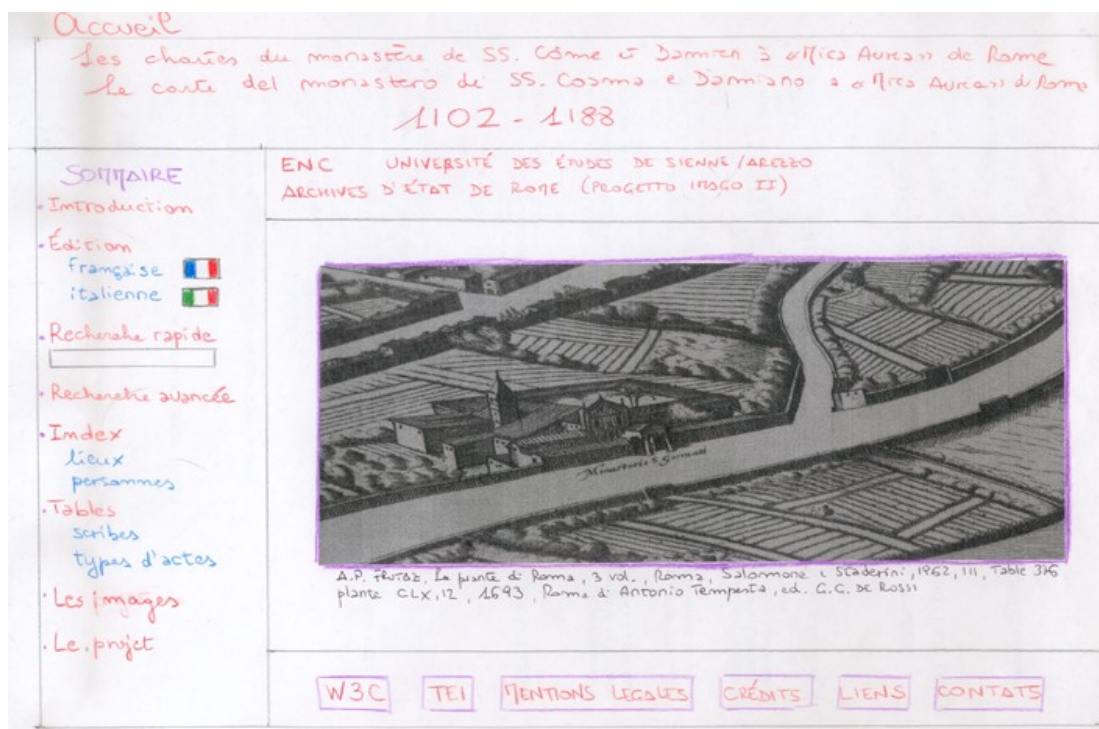 Accueil
Les chartes du monastère de SS. Côme et Damien à «Mica Aurea» de Rome
Le carte del monastero di SS. Cosma e Damiano a «Mica Aurea» di Roma
1102 - 1188
SOMMAIRE
• Introduction
• Édition
française
italienne
• Recherche rapide
• Recherche avancée
• Index
lieux
personnes
• Tables
scribes
types d'actes
• Les images
• Le projet
ENC UNIVERSITÉ DES ÉTUDES DE SIENNE/AREZZO
ARCHIVES D'ÉTAT DE ROME (PROGETTO IMAGO II)
A.P. FRUTAZ, Le piante di Roma, 3 vol., Roma, Salomone i Staderini, 1962, III, Table 316
plante CLX,12, 1693, Roma di Antonio Tempesta, ed. G.G. DE ROSSI
W3C TEI MENTIONS LEGALES CRÉDITS LIENS CONTATS